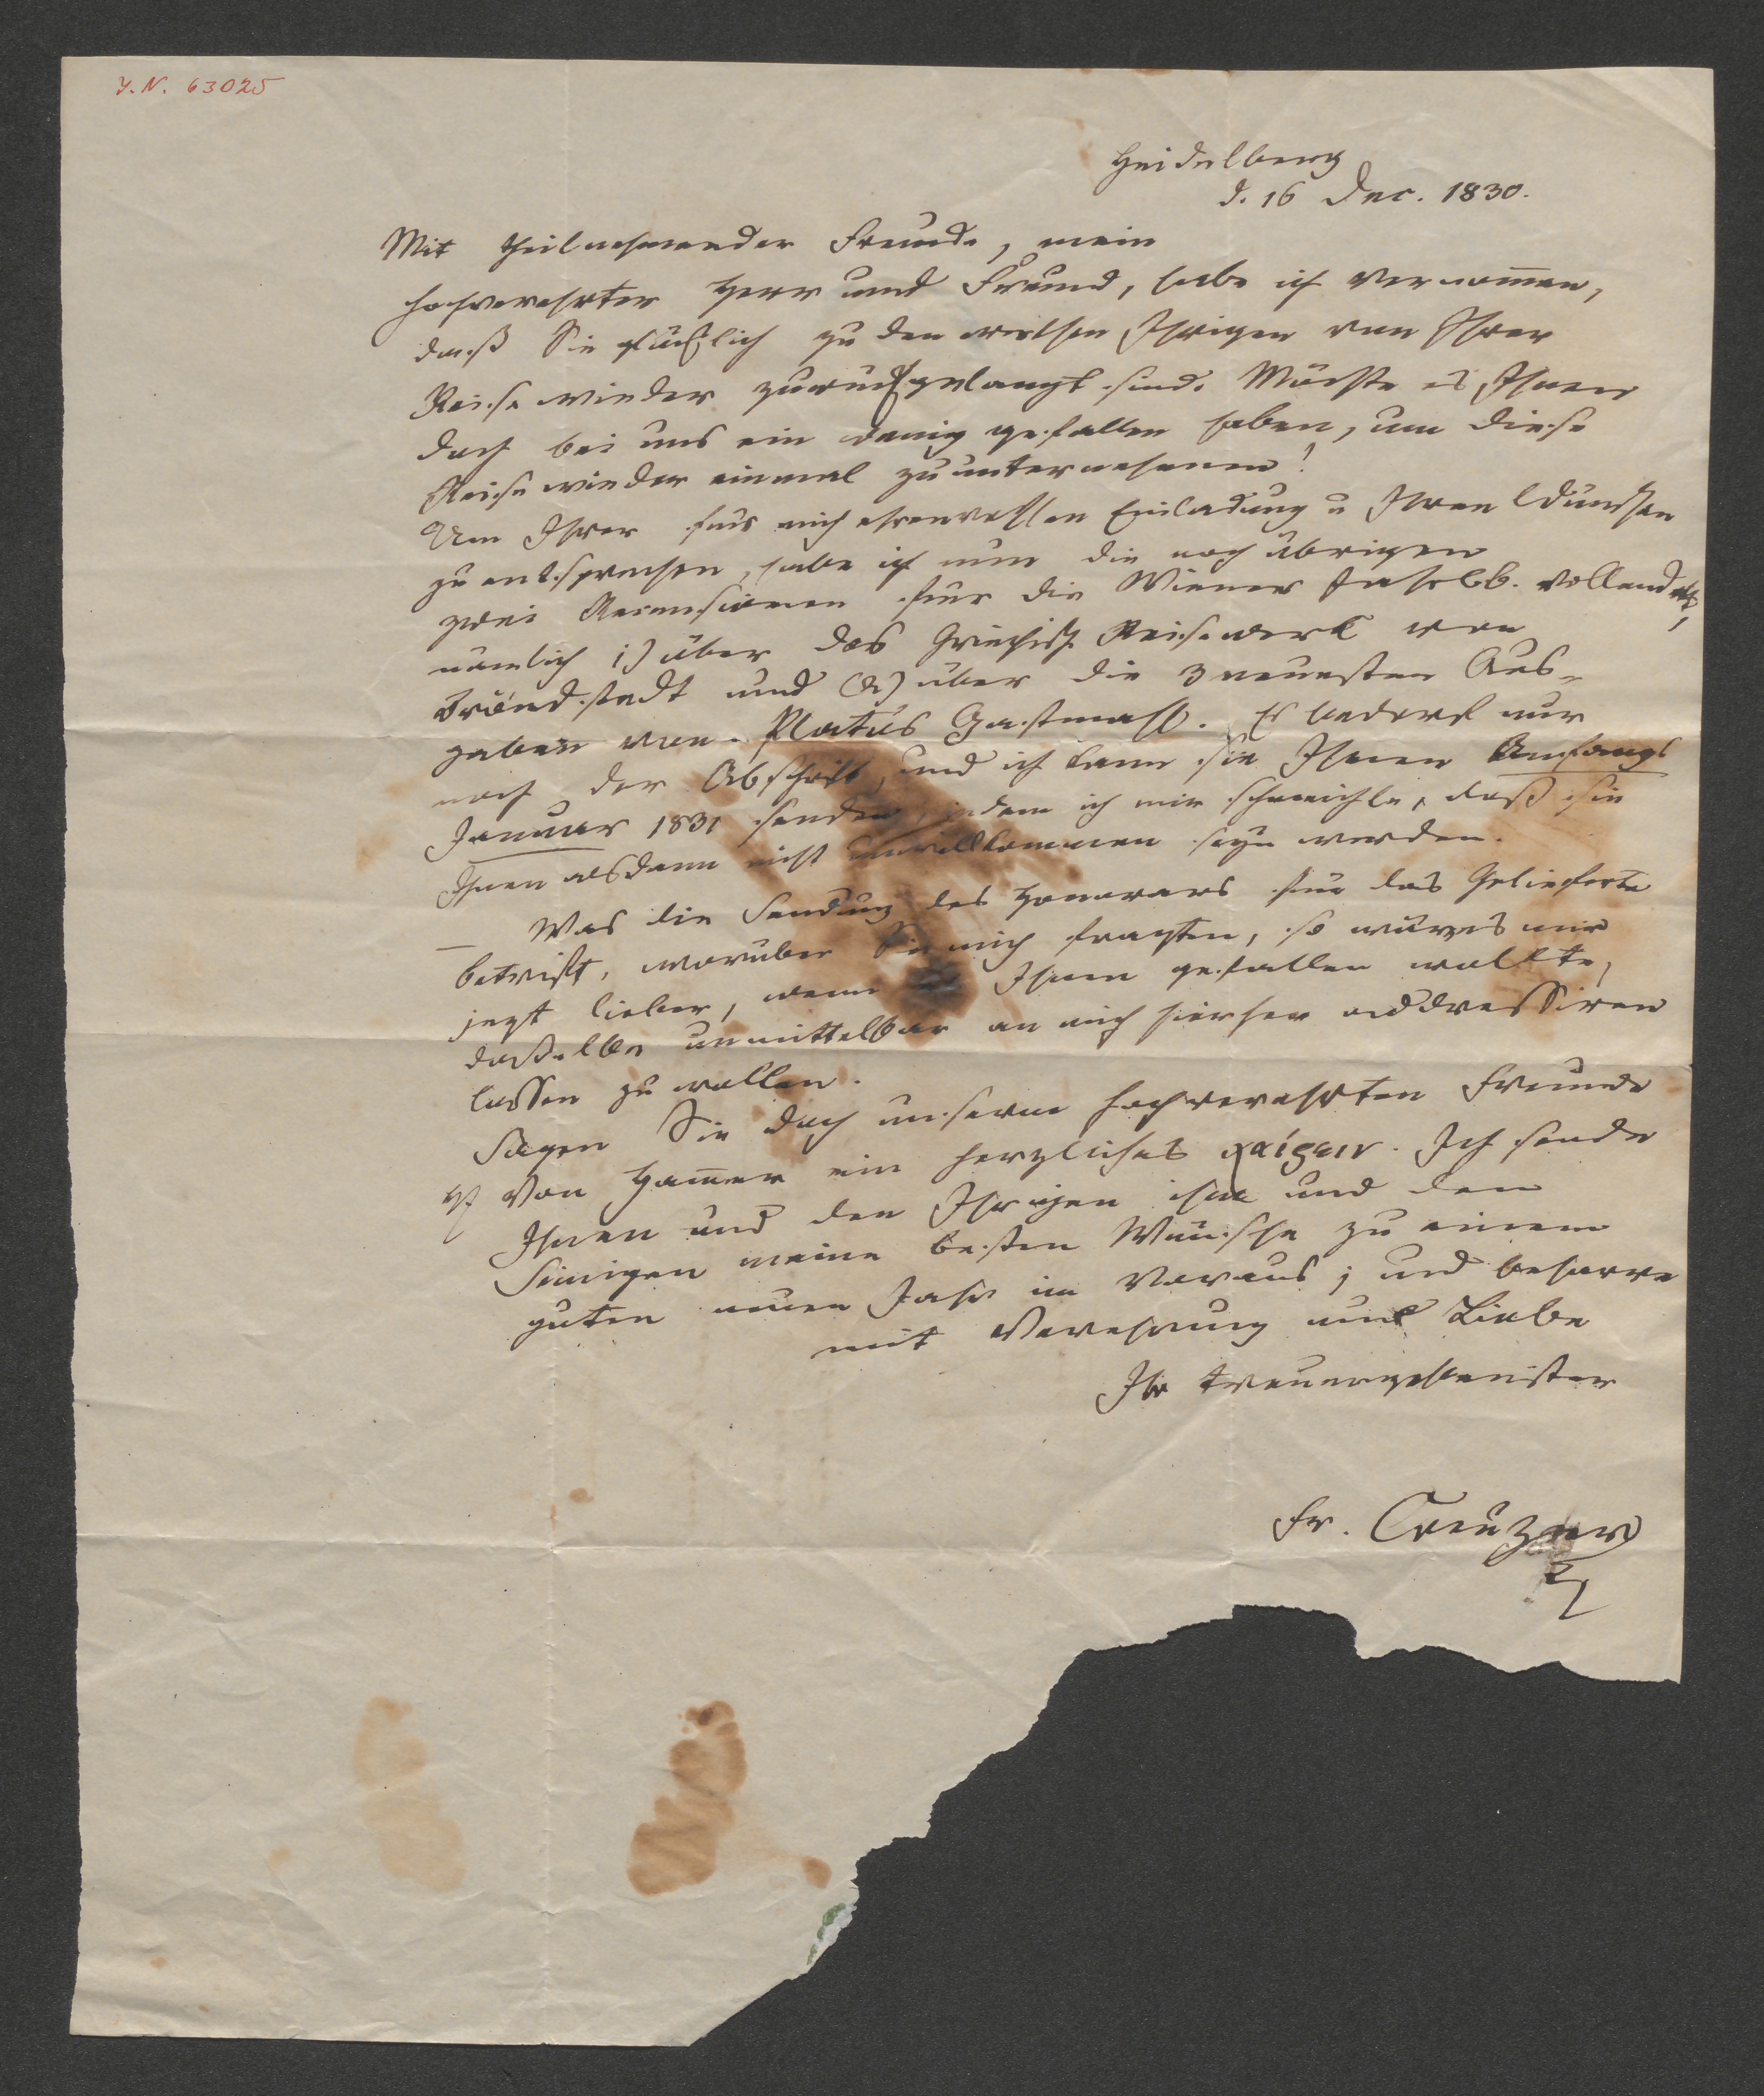 J.N. 63025
Heidelberg
d. 16 Dec. 1830.
Mit theilnehmender Freude, mein
hochverehrter Herr und Freund, habe ich vernom̅en,
daß Sie glücklich zu den Ihrigen von Ihrer
Reise wieder zurückgelangt sind. Möchte es Ihnen
doch bei uns ein wenig gefallen haben, um diese
Reise wieder einmal zu unternehmen!
Um Ihrer für mich ehrenvollen Einladung u Ihren Wünschen
zu entsprechen, habe ich nun die noch übrigen
zwei Recensionen für die Wiener Jahrbb. vollendet,
nämlich 1) über das Griechisch. Reisewerk von
Bröndstedt und (2) über die 3 neuesten Aus-
gaben von Plato's Gastmahl. Es bedarf nur
noch der Abschrift, und ich kann sie Ihnen Anfangs
Januar 1831 senden, indem ich mir schmeichle, daß sie
Ihnen alsdann nicht unwillkommen seyn werden.
— Was die Sendung des Honorars für das Gelieferte
betrifft, worüber Sie mich fragten, so wär es mir
jezt lieber, wenn Ihnen gefallen wollte,
dasselbe unmittelbar an mich hierher addressiren
lassen zu wollen.
Sagen Sie doch unserm hochverehrten Freunde
H von Ham̅er ein herzliches χαίρειν. Ich sende
Ihnen und den Ihrigen ihm und den
Seinigen meine besten Wünsche zu einem
guten neuen Jahr im Voraus; und beharre
mit Verehrung und Liebe
Ihr treuergebenster
Fr. Creuzer